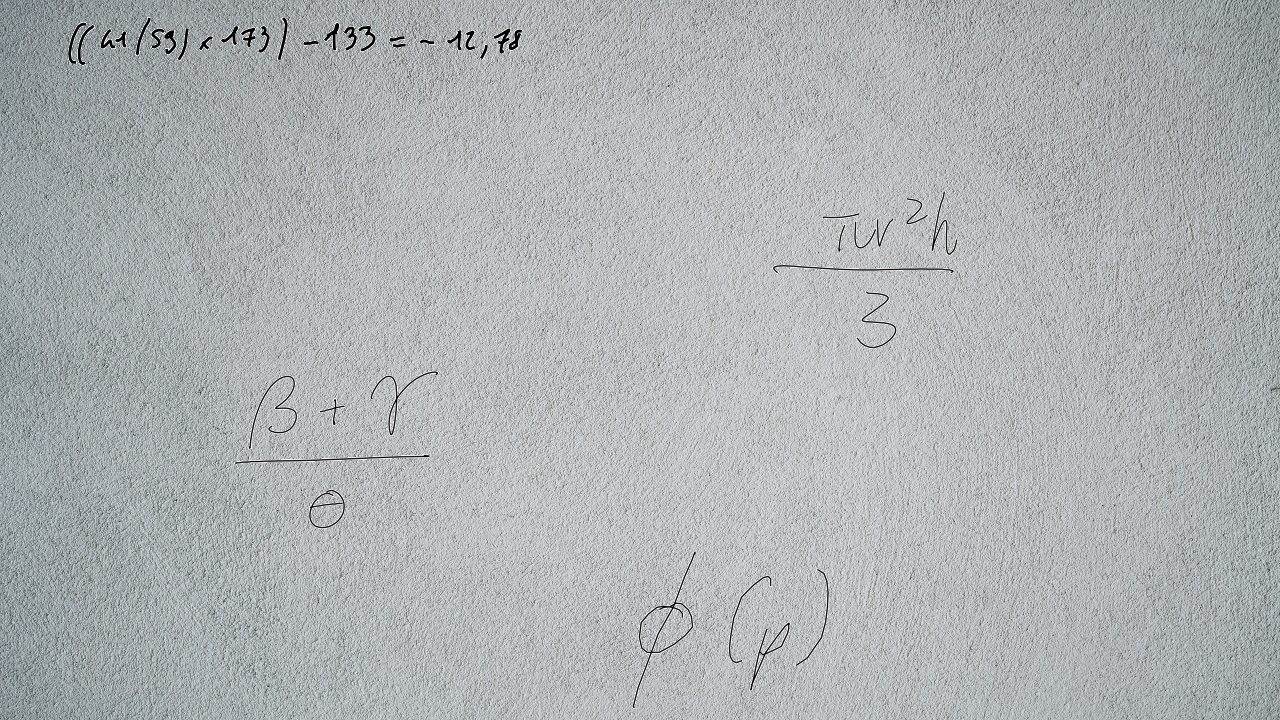 ((41/59) × 173) - 133 = - 12,78
πr²h
3
β + γ
θ
ϕ (p)